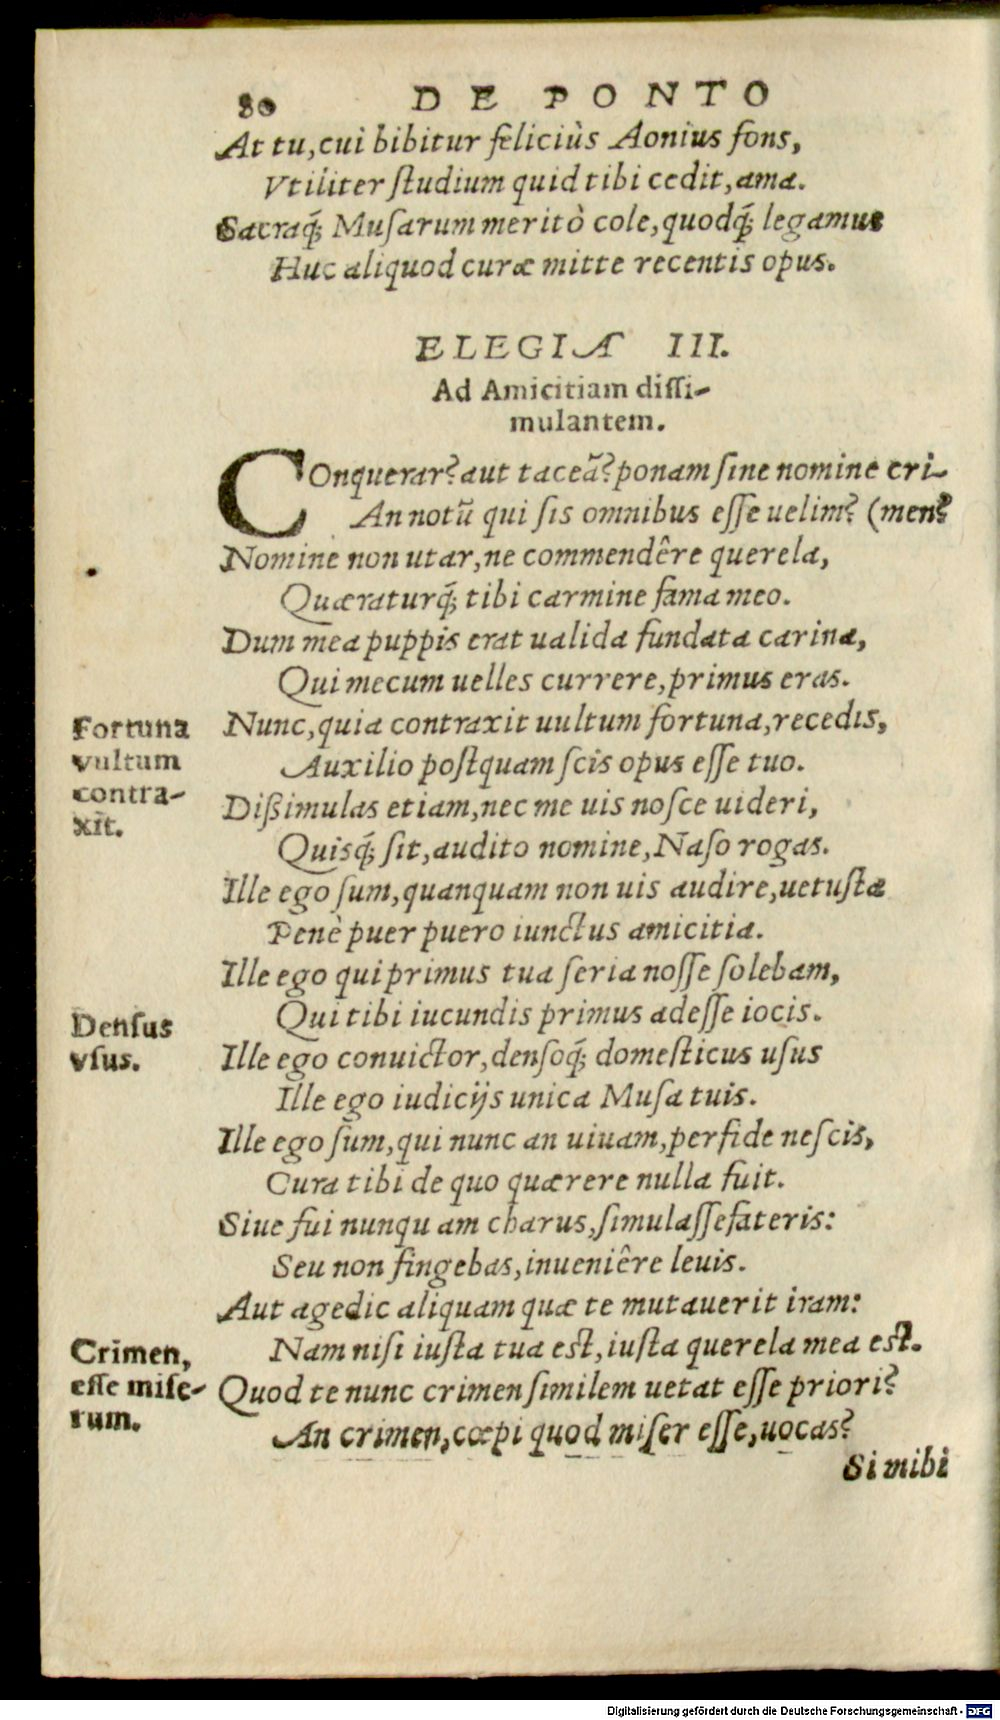 80 DE PONTO
At tu, cui bibitur feliciùs Aonius fons,
Vtiliter ſtudium quid tibi cedit, ama.
Sacraq́; Muſarum meritò cole, quodq́; legamus
Huc aliquod curæ mitte recentis opus.
ELEGIA III.
Ad Amicitiam diſſi-
mulantem.
COnquerar? aut taceã? ponam ſine nomine cri-
An notũ qui ſis omnibus eſſe uelim? (men?
Nomine non utar, ne commendêre querela,
Quæraturq́; tibi carmine fama meo.
Dum mea puppis erat ualida fundata carina,
Qui mecum uelles currere, primus eras.
Fortuna vultum contra-xit.
Nunc, quia contraxit uultum fortuna, recedis,
Auxilio poſtquam ſcis opus eſſe tuo.
Dißimulas etiam, nec me uis noſce uideri,
Quisq́; ſit, audito nomine, Naſo rogas.
Ille ego ſum, quanquam non uis audire, uetuſta
Penè puer puero iunctus amicitia.
Ille ego qui primus tua ſeria noſſe ſolebam,
Qui tibi iucundis primus adeſſe iocis.
Denſus
vſus.
Ille ego conuictor, denſoq́; domeſticus uſus
Ille ego iudicijs unica Muſa tuis.
Ille ego ſum, qui nunc an uiuam, perfide neſcis,
Cura tibi de quo quærere nulla fuit.
Siue fui nunqu am charus, ſimulaſſe fateris:
Seu non fingebas, inueniêre leuis.
Aut age dic aliquam quæ te mutauerit iram:
Nam niſi iuſta tua eſt, iuſta querela mea eſt.
Crimen,
eſſe miſe-
rum.
Quod te nunc crimen ſimilem uetat eſſe priori?
An crimen, cœpi quod miſer eſſe, uocas?
Si mihi
Digitalisierung gefördert durch die Deutsche Forschungsgemeinschaft - DFG